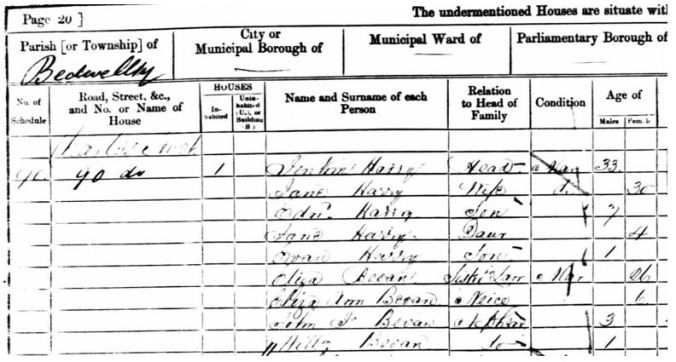 Page 20 ]
The undermentioned Houses are situate wit
Parish [or Township] of
City or
Municipal Borough of
Municipal Ward of
Parliamentary Borough of
Bedwellty
No. of
Schedule
Road, Street, &c.,
and No. or Name of
House
HOUSES
In-
habited
Unin-
habited
(U.), or
Building
(B.)
Name and Surname of each
Person
Relation
to Head of
Family
Condition
Age of
Males
90 do 1 Jenkin Harry Head Mar 33
Jane Harry Wife do 30
Harry Son 7
Jane Harry Daur 4
Evan Harry Son 1
Eliza Bevan Mar 26
Eliza Ann Bevan Niece 6
John Bevan 3
Willy Bevan do 1